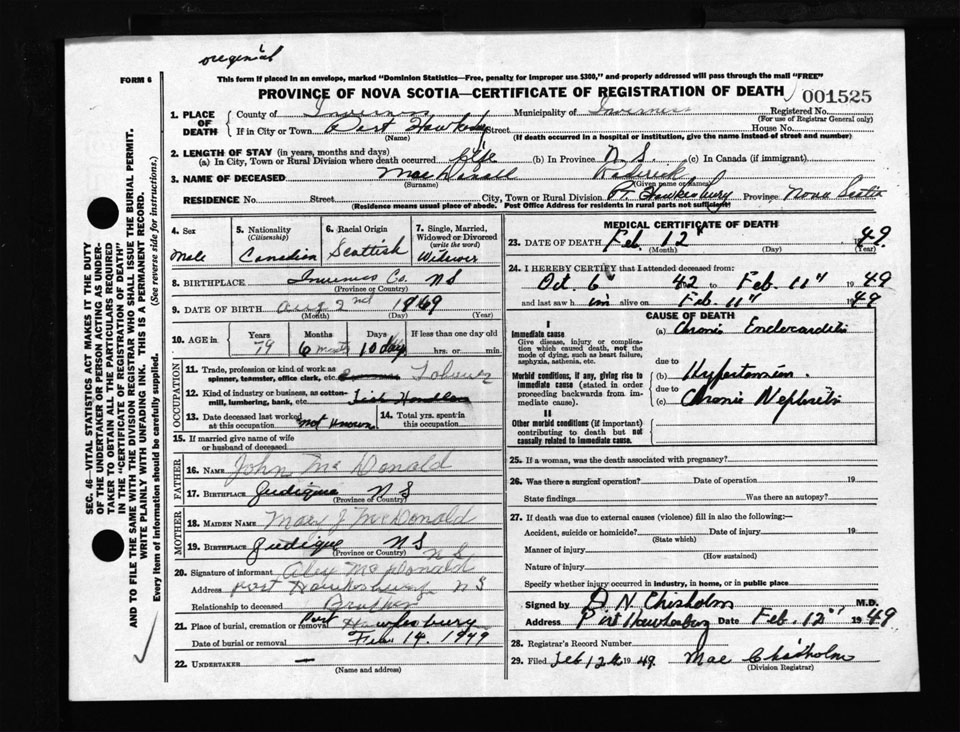 original
FORM 6
This form if placed in an envelope, marked "Dominion Statistics—Free, penalty for improper use $300," and properly addressed will pass through the mail "FREE"
PROVINCE OF NOVA SCOTIA—CERTIFICATE OF REGISTRATION OF DEATH
001525
1. PLACE OF DEATH
County of Inverness Municipality of Inverness Registered No.
(For use of Registrar General only)
If in City or Town Port Hawkesbury Street House No.
(Name) (If death occurred in a hospital or institution, give the name instead of street and number)
2. LENGTH OF STAY (in years, months and days)
(a) In City, Town or Rural Division where death occurred Life (b) In Province N.S. (c) In Canada (if immigrant)
3. NAME OF DECEASED MacDonald Roderick
(Surname) (Given name or names)
RESIDENCE No. Street City, Town or Rural Division Pt. Hawkesbury Province Nova Scotia
(Residence means usual place of abode. Post Office Address for residents in rural parts not sufficient)
4. Sex Male
5. Nationality (Citizenship) Canadian
6. Racial Origin Scottish
7. Single, Married, Widowed or Divorced (write the word) Widower
8. BIRTHPLACE Inverness Co. NS
(Province or Country)
9. DATE OF BIRTH Aug 2nd 1869
(Month) (Day) (Year)
10. AGE in Years 79 Months 6 mnts Days 10 days If less than one day old hrs. or min.
OCCUPATION
11. Trade, profession or kind of work as spinner, teamster, office clerk, etc. Laborer
12. Kind of industry or business, as cotton-mill, lumbering, bank, etc. Fish Handler
13. Date deceased last worked at this occupation Not Known
14. Total yrs. spent in this occupation
15. If married give name of wife or husband of deceased
FATHER
16. NAME John McDonald
17. BIRTHPLACE Judique NS
(Province or Country)
MOTHER
18. MAIDEN NAME Mary J McDonald
19. BIRTHPLACE Judique NS
(Province or Country) NS
20. Signature of informant Alex McDonald
Address Port Hawkesbury NS
Relationship to deceased Brother
21. Place of burial, cremation or removal Port Hawkesbury
Date of burial or removal Feb. 14. 1949
22. UNDERTAKER —
(Name and address)
MEDICAL CERTIFICATE OF DEATH
23. DATE OF DEATH Feb. 12" 1949.
(Month) (Day) (Year)
24. I HEREBY CERTIFY that I attended deceased from:
Oct. 6" 42 to Feb. 11" 1949
and last saw him alive on Feb. 11" 1949
CAUSE OF DEATH
I
Immediate cause (a) Chronic Endocarditis
Give disease, injury or complication which caused death, not the mode of dying, such as heart failure, asphyxia, asthenia, etc.
due to
Morbid conditions, if any, giving rise to immediate cause (stated in order proceeding backwards from immediate cause). (b) Hypertension.
due to
(c) Chronic Nephritis
II
Other morbid conditions (if important) contributing to death but not causally related to immediate cause.
25. If a woman, was the death associated with pregnancy?
26. Was there a surgical operation? Date of operation 19
State findings Was there an autopsy?
27. If death was due to external causes (violence) fill in also the following:—
Accident, suicide or homicide? Date of injury 19
(State which)
Manner of injury
(How sustained)
Nature of injury
Specify whether injury occurred in industry, in home, or in public place
Signed by D. N. Chisholm M.D.
Address Port Hawkesbury Date Feb. 12" 1949
28. Registrar's Record Number
29. Filed Feb 12th 1949. Mae Chisholm
(Division Registrar)
SEC. 46—VITAL STATISTICS ACT MAKES IT THE DUTY
OF THE UNDERTAKER OR PERSON ACTING AS UNDER-
TAKER TO OBTAIN ALL THE PARTICULARS REQUIRED
IN THE "CERTIFICATE OF REGISTRATION OF DEATH"
AND TO FILE THE SAME WITH THE DIVISION REGISTRAR WHO SHALL ISSUE THE BURIAL PERMIT.
WRITE PLAINLY WITH UNFADING INK. THIS IS A PERMANENT RECORD.
Every item of information should be carefully supplied. (See reverse side for instructions.)